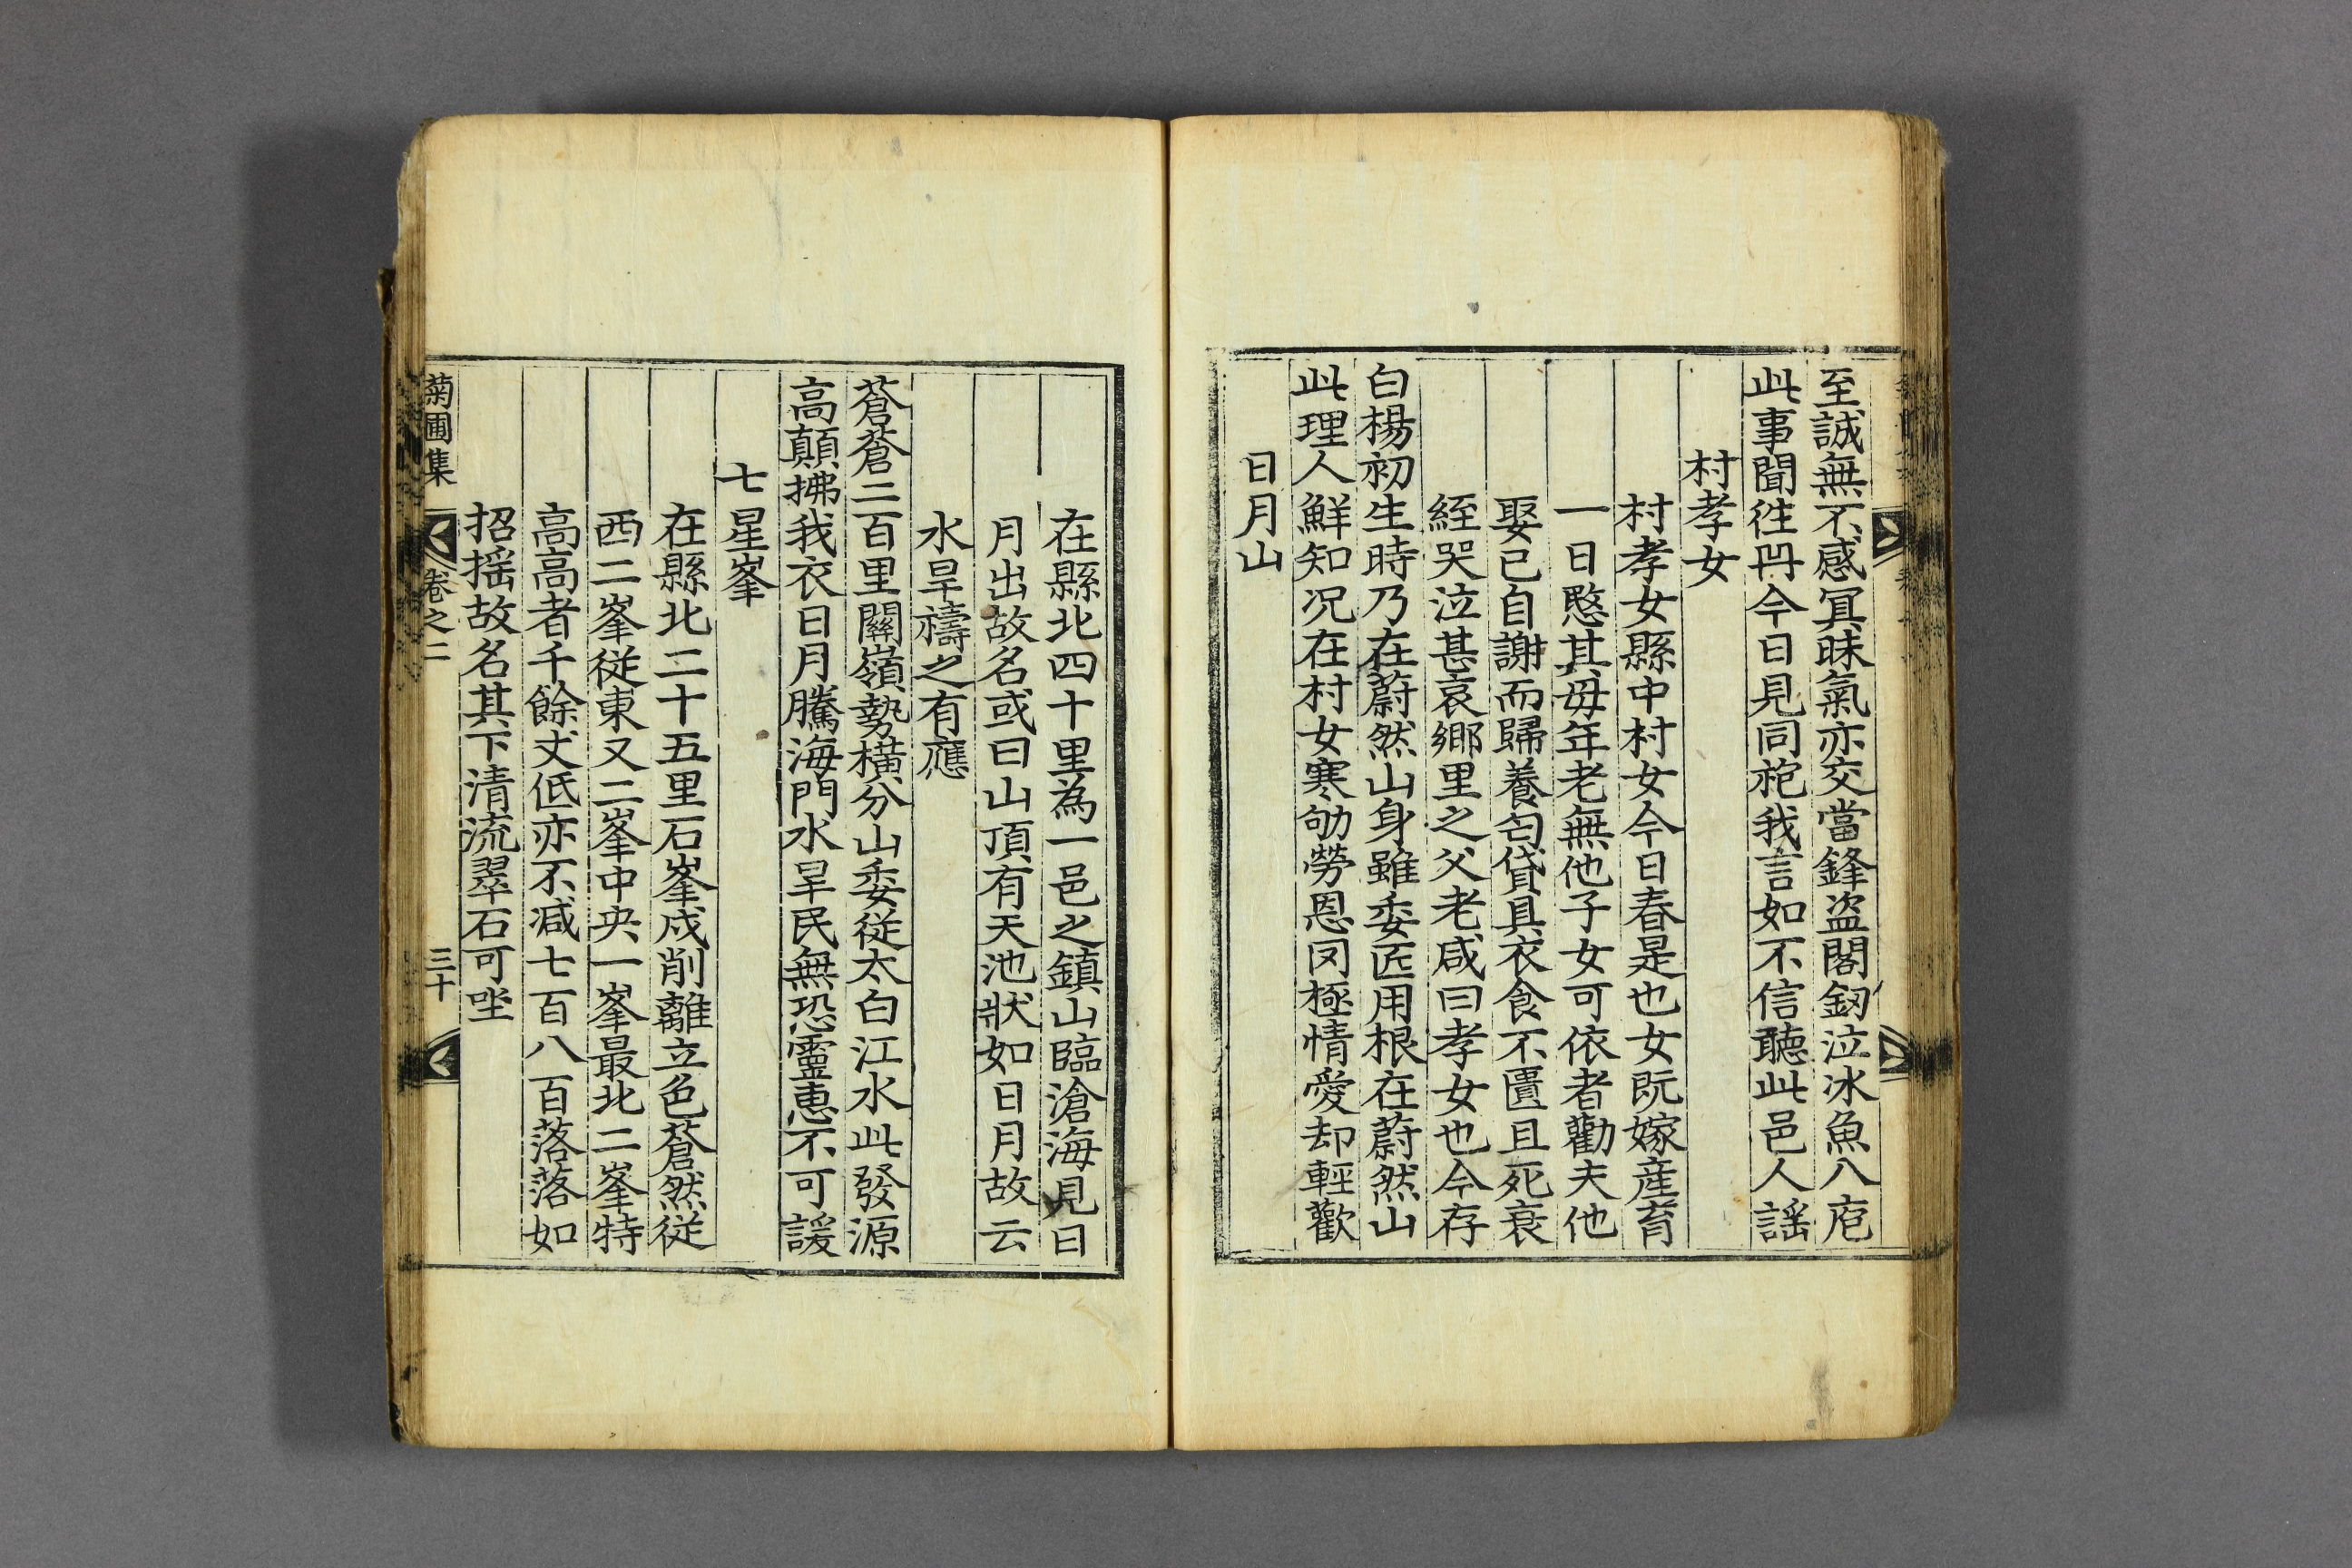 至誠無不感冥昧氣亦交當鋒盜閣釰泣冰魚入庖
此事聞徃丹今日見同袍我言如不信聽此邑人謡
村孝女
村孝女縣中村女今日春是也女既嫁産育
一日愍其母年老無他子女可依者勸夫他
娶已自謝而歸養匄貸具衣食不匱且死衰
絰哭泣甚哀鄉里之父老咸曰孝女也今存
白楊初生時乃在蔚然山身雖委匠用根在蔚然山
此理人鮮知况在村女寒劬勞恩罔極情愛却輕歡
日月山
在縣北四十里為一邑之鎮山臨滄海見日
月出故名或曰山頂有天池狀如日月故云
水旱禱之有應
蒼蒼二百里關嶺勢橫分山委従太白江水此發源
高顛拂我衣日月騰海門水旱民無恐靈惠不可諼
七星峯
在縣北二十五里石峯戍削離立色蒼然従
西二峯従東又二峯中央一峯最北二峯特
高高者千餘丈低亦不减七百八百落落如
招揺故名其下清流翠石可坐
菊圃集
卷之二
三十